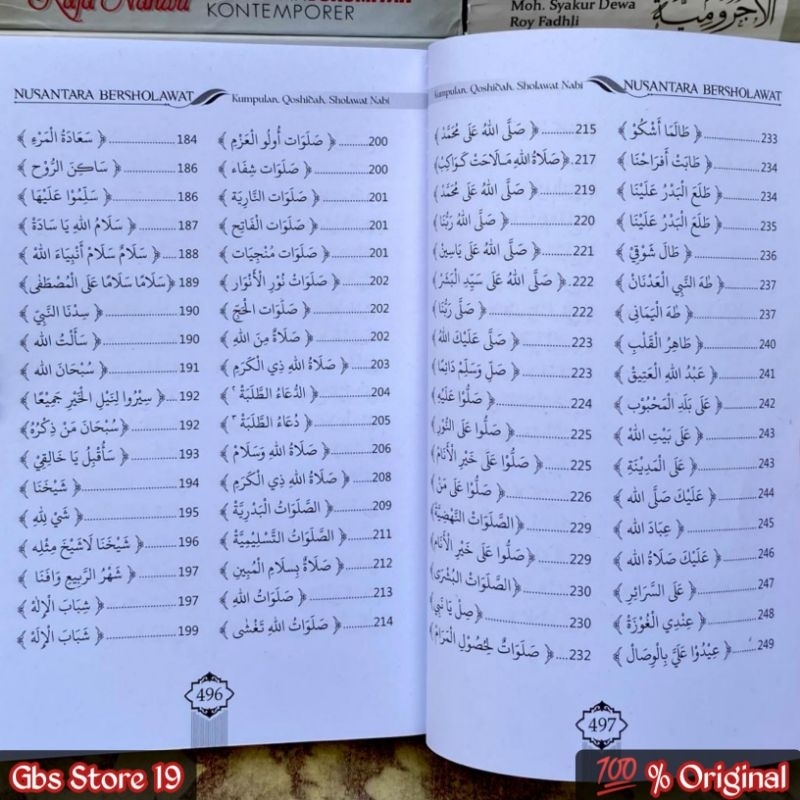 KONTEMPORER
Moh. Syakur Dewa
Roy Fadhli
الآجرومية
NUSANTARA BERSHOLAWAT
Kumpulan, Qoshidah, Sholawat Nabi
﴿ سَعَادَةُ الْمَرْءِ ﴾ 184
﴿ سَاكِنَ الرُّوْحِ ﴾ 186
﴿ سَلِّمُوْا عَلَيْهَا ﴾ 186
﴿ سَلَامُ اللهِ يَا سَادَةْ ﴾ 187
﴿ سَلَامٌ سَلَامْ أَنْبِيَاءَ اللهْ ﴾ 188
﴿ سَلَامًا سَلَامًا عَلَى الْمُصْطَفَى ﴾ 189
﴿ سِدْنَا النَّبِيّ ﴾ 190
﴿ سَأَلْتُ الله ﴾ 190
﴿ سُبْحَانَ الله ﴾ 191
﴿ سِيْرُوا لِنَيْلِ الْخَيْرِ جَمِيْعًا ﴾ 192
﴿ سُبْحَانَ مَنْ ذِكْرُهُ ﴾ 192
﴿ سَأُقْبِلُ يَا خَالِقِيْ ﴾ 193
﴿ شَيْخَنَا ﴾ 194
﴿ شَيْ لِلهِ ﴾ 195
﴿ شَيْخَنَا لَاشَيْخَ مِثْلِه ﴾ 196
﴿ شَهْرُ الرَّبِيعِ وَافَنَا ﴾ 197
﴿ شِبَابَ الْإِلٰهْ ﴾ 197
﴿ شَبَابَ الْإِلَهْ ﴾ 199
﴿ صَلَوَات أُولُو الْعَزْمِ ﴾ 200
﴿ صَلَوَات شِفَاء ﴾ 200
﴿ صَلَوَات النَّارِيَة ﴾ 201
﴿ صَلَوَات الْفَاتِح ﴾ 201
﴿ صَلَوَات مُنْجِيَات ﴾ 201
﴿ صَلَوَاتُ نُوْرِ الْأَنْوَار ﴾ 202
﴿ صَلَوَات الْحَجّ ﴾ 202
﴿ صَلَاةٌ مِنَ اللهِ ﴾ 202
﴿ صَلَاةُ اللهِ ذِي الْكَرَمِ ﴾ 203
﴿ الدُّعَاءُ الطَّلَبَةُ ١ ﴾ 204
﴿ دُعَاءُ الطَّلَبَةُ ٢ ﴾ 205
﴿ صَلَاةُ اللهِ وَسَلَامْ ﴾ 206
﴿ صَلَاةُ اللهِ ذِي الْكَرَمِ ﴾ 208
﴿ الصَّلَوَاتُ الْبَدْرِيَّةُ ﴾ 209
﴿ الصَّلَوَاتُ التَّسْلِيْمِيَّةُ ﴾ 211
﴿ صَلَاةٌ بِسَلَامِ الْمُبِيْنِ ﴾ 212
﴿ صَلَوَاتُ اللهِ ﴾ 213
﴿ صَلَوَاتُ اللهِ تَغْشَى ﴾ 214
496
Kumpulan, Qoshidah, Sholawat Nabi
NUSANTARA BERSHOLAWAT
﴿ صَلَّى اللهُ عَلَى مُحَمَّدْ ﴾ 215
﴿ صَلَاةُ اللهِ مَالَاحَتْ كَوَاكِبْ ﴾ 217
﴿ صَلَّى اللهُ عَلَى مُحَمَّدْ ﴾ 219
﴿ صَلَّى اللهُ رَبُّنَا ﴾ 220
﴿ صَلَّى اللهُ عَلَى يَاسِيْن ﴾ 221
﴿ صَلَّى اللهُ عَلَى سَيِّدِ الْبَشَرْ ﴾ 222
﴿ صَلَّى رَبُّنَا ﴾ 222
﴿ صَلَّى عَلَيْكَ اللهُ ﴾ 223
﴿ صَلِّ وَسَلِّمْ دَائِمًا ﴾ 223
﴿ صَلُّوا عَلَيْهِ ﴾ 224
﴿ صَلُّوا عَلَى النُّوْرْ ﴾ 225
﴿ صَلُّوْا عَلَى خَيْرِ الْأَنَامْ ﴾ 225
﴿ صَلُّوا عَلَى مَنْ ﴾ 226
﴿ الصَّلَوَاتُ النَّهْضِيَّةُ ﴾ 229
﴿ صَلُّوا عَلَى خَيْرِ الْأَنَامِ ﴾ 229
﴿ الصَّلَوَاتُ الْبُشْرَى ﴾ 230
﴿ صِلْ يَا نَبِيْ ﴾ 230
﴿ صَلَوَاتٌ لِحُصُوْلِ الْمَرَامْ ﴾ 232
﴿ طَالَمَا أَشْكُوْ ﴾ 233
﴿ طَابَتْ أَفْرَاحُنَا ﴾ 234
﴿ طَلَعَ الْبَدْرُ عَلَيْنَا ﴾ 234
﴿ طَلَعَ الْبَدْرُ عَلَيْنَا ﴾ 235
﴿ طَالَ شَوْقِيْ ﴾ 236
﴿ طٰهَ النَّبِي الْعَدْنَانْ ﴾ 237
﴿ طٰهَ الْيَمَانِى ﴾ 237
﴿ طَاهِرُ الْقَلْبِ ﴾ 240
﴿ عَبْدُ اللهِ الْعَتِيْقْ ﴾ 241
﴿ عَلَى بَلَدِ الْمَحْبُوْب ﴾ 242
﴿ عَلَى بَيْتِ اللهْ ﴾ 243
﴿ عَلَى الْمَدِيْنَةِ ﴾ 243
﴿ عَلَيْكَ صَلَّى الله ﴾ 244
﴿ عِبَادَ الله ﴾ 245
﴿ عَلَيْكَ صَلَاةُ الله ﴾ 246
﴿ عَلَى السَّرَائِرِ ﴾ 247
﴿ عِنْدِي الْعُوْزَةْ ﴾ 248
﴿ عِيْدُوْا عَلَيَّ بِالْوِصَالْ ﴾ 249
497
Gbs Store 19
100 % Original